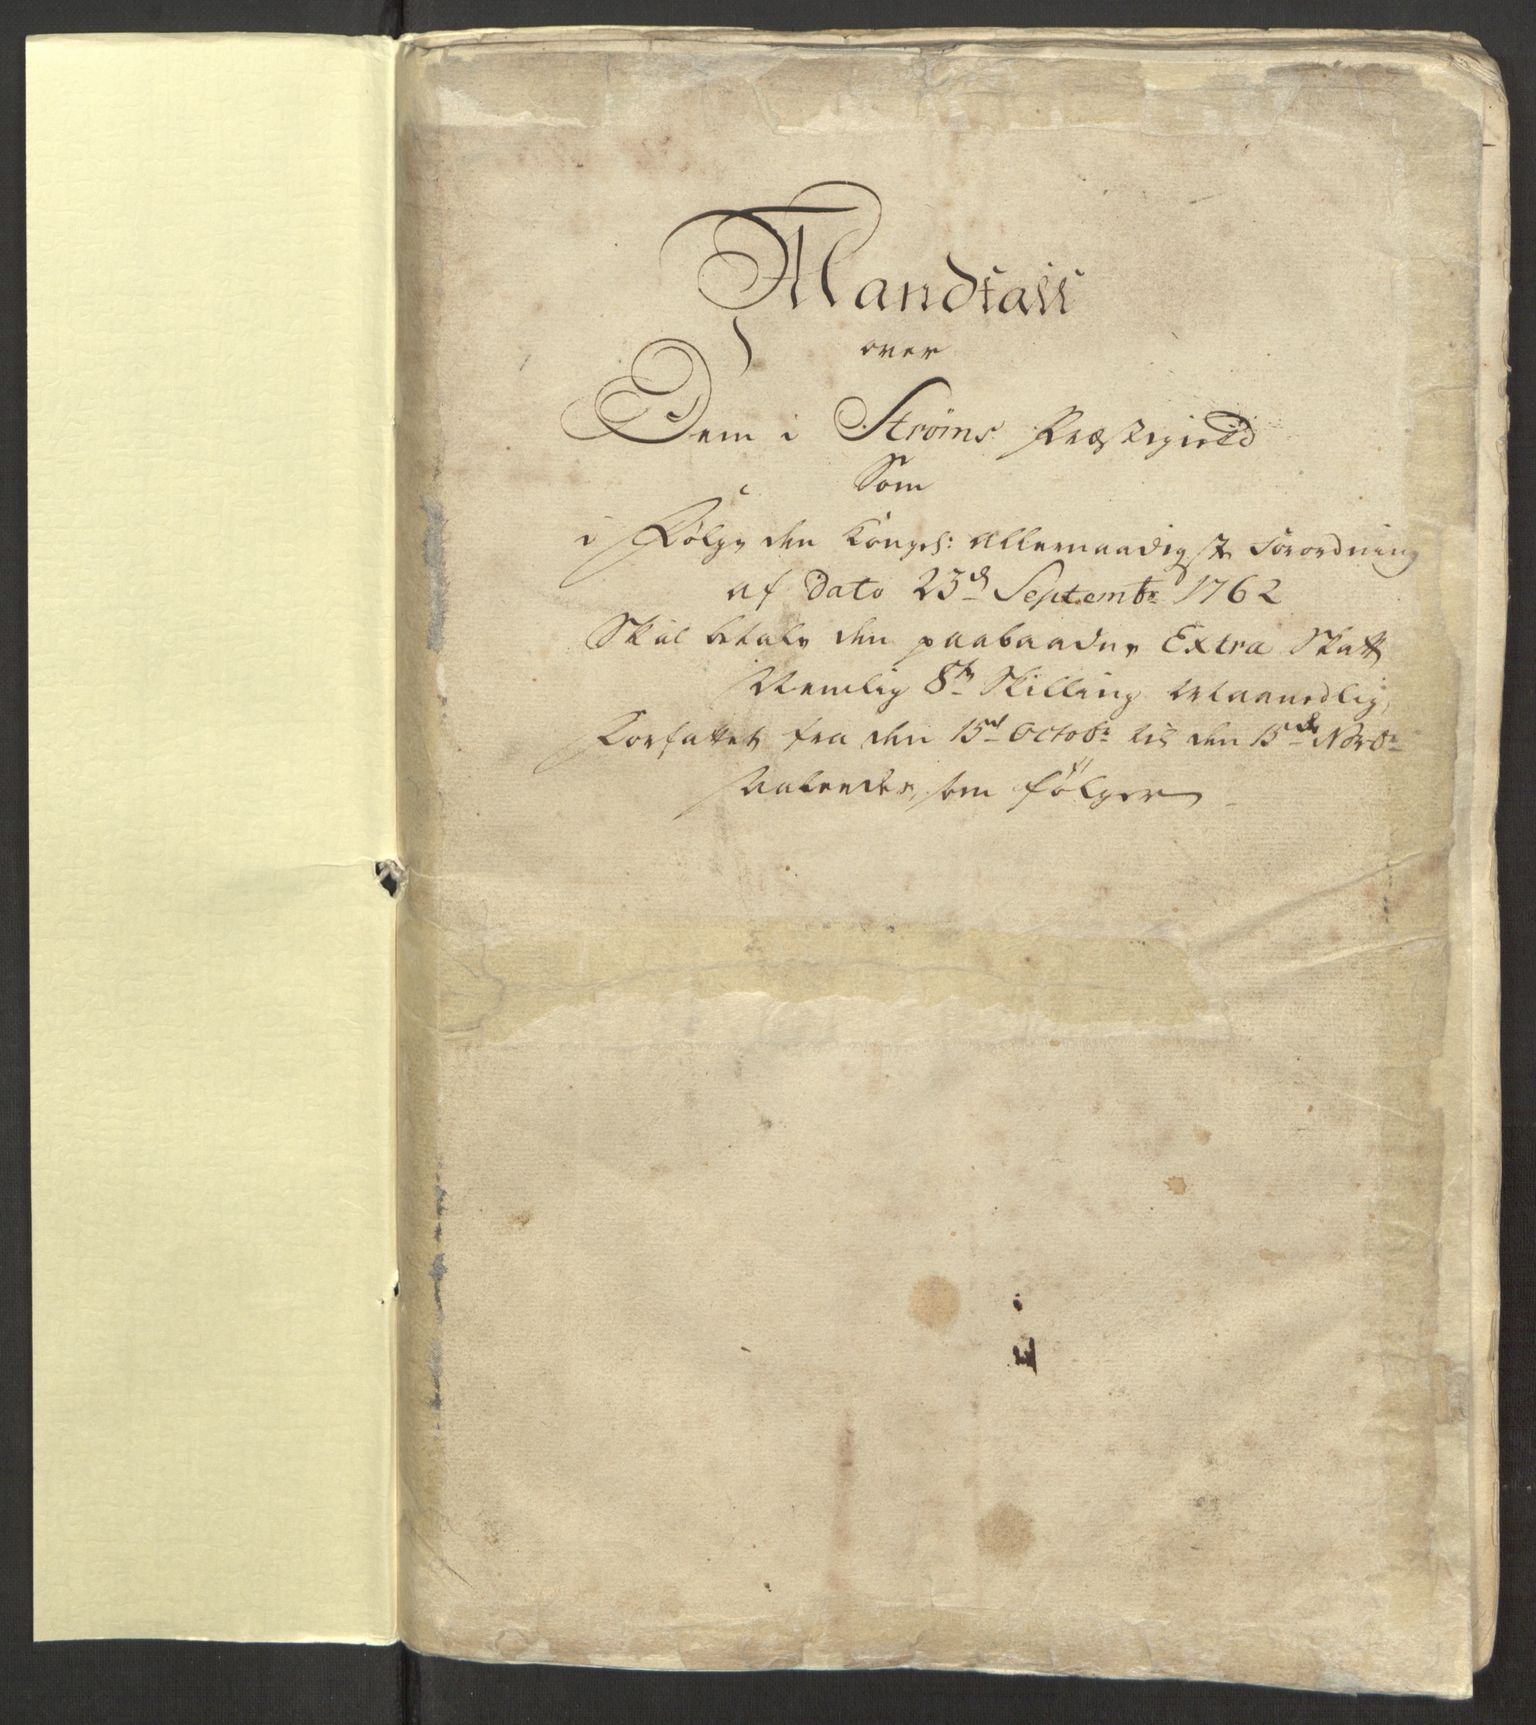 Mandtall
over
Dem i Strøms Præstegield
Som
i Følge den Kongel: Allernaadigste Forordning
af Dato 23d Septembr 1762
Skal betale den paabaadne Extra Skatt
Nemlig 8te Skilling Maanedlig,
Forfattet fra den 15de Octobr til den 15de Novbr
som følger